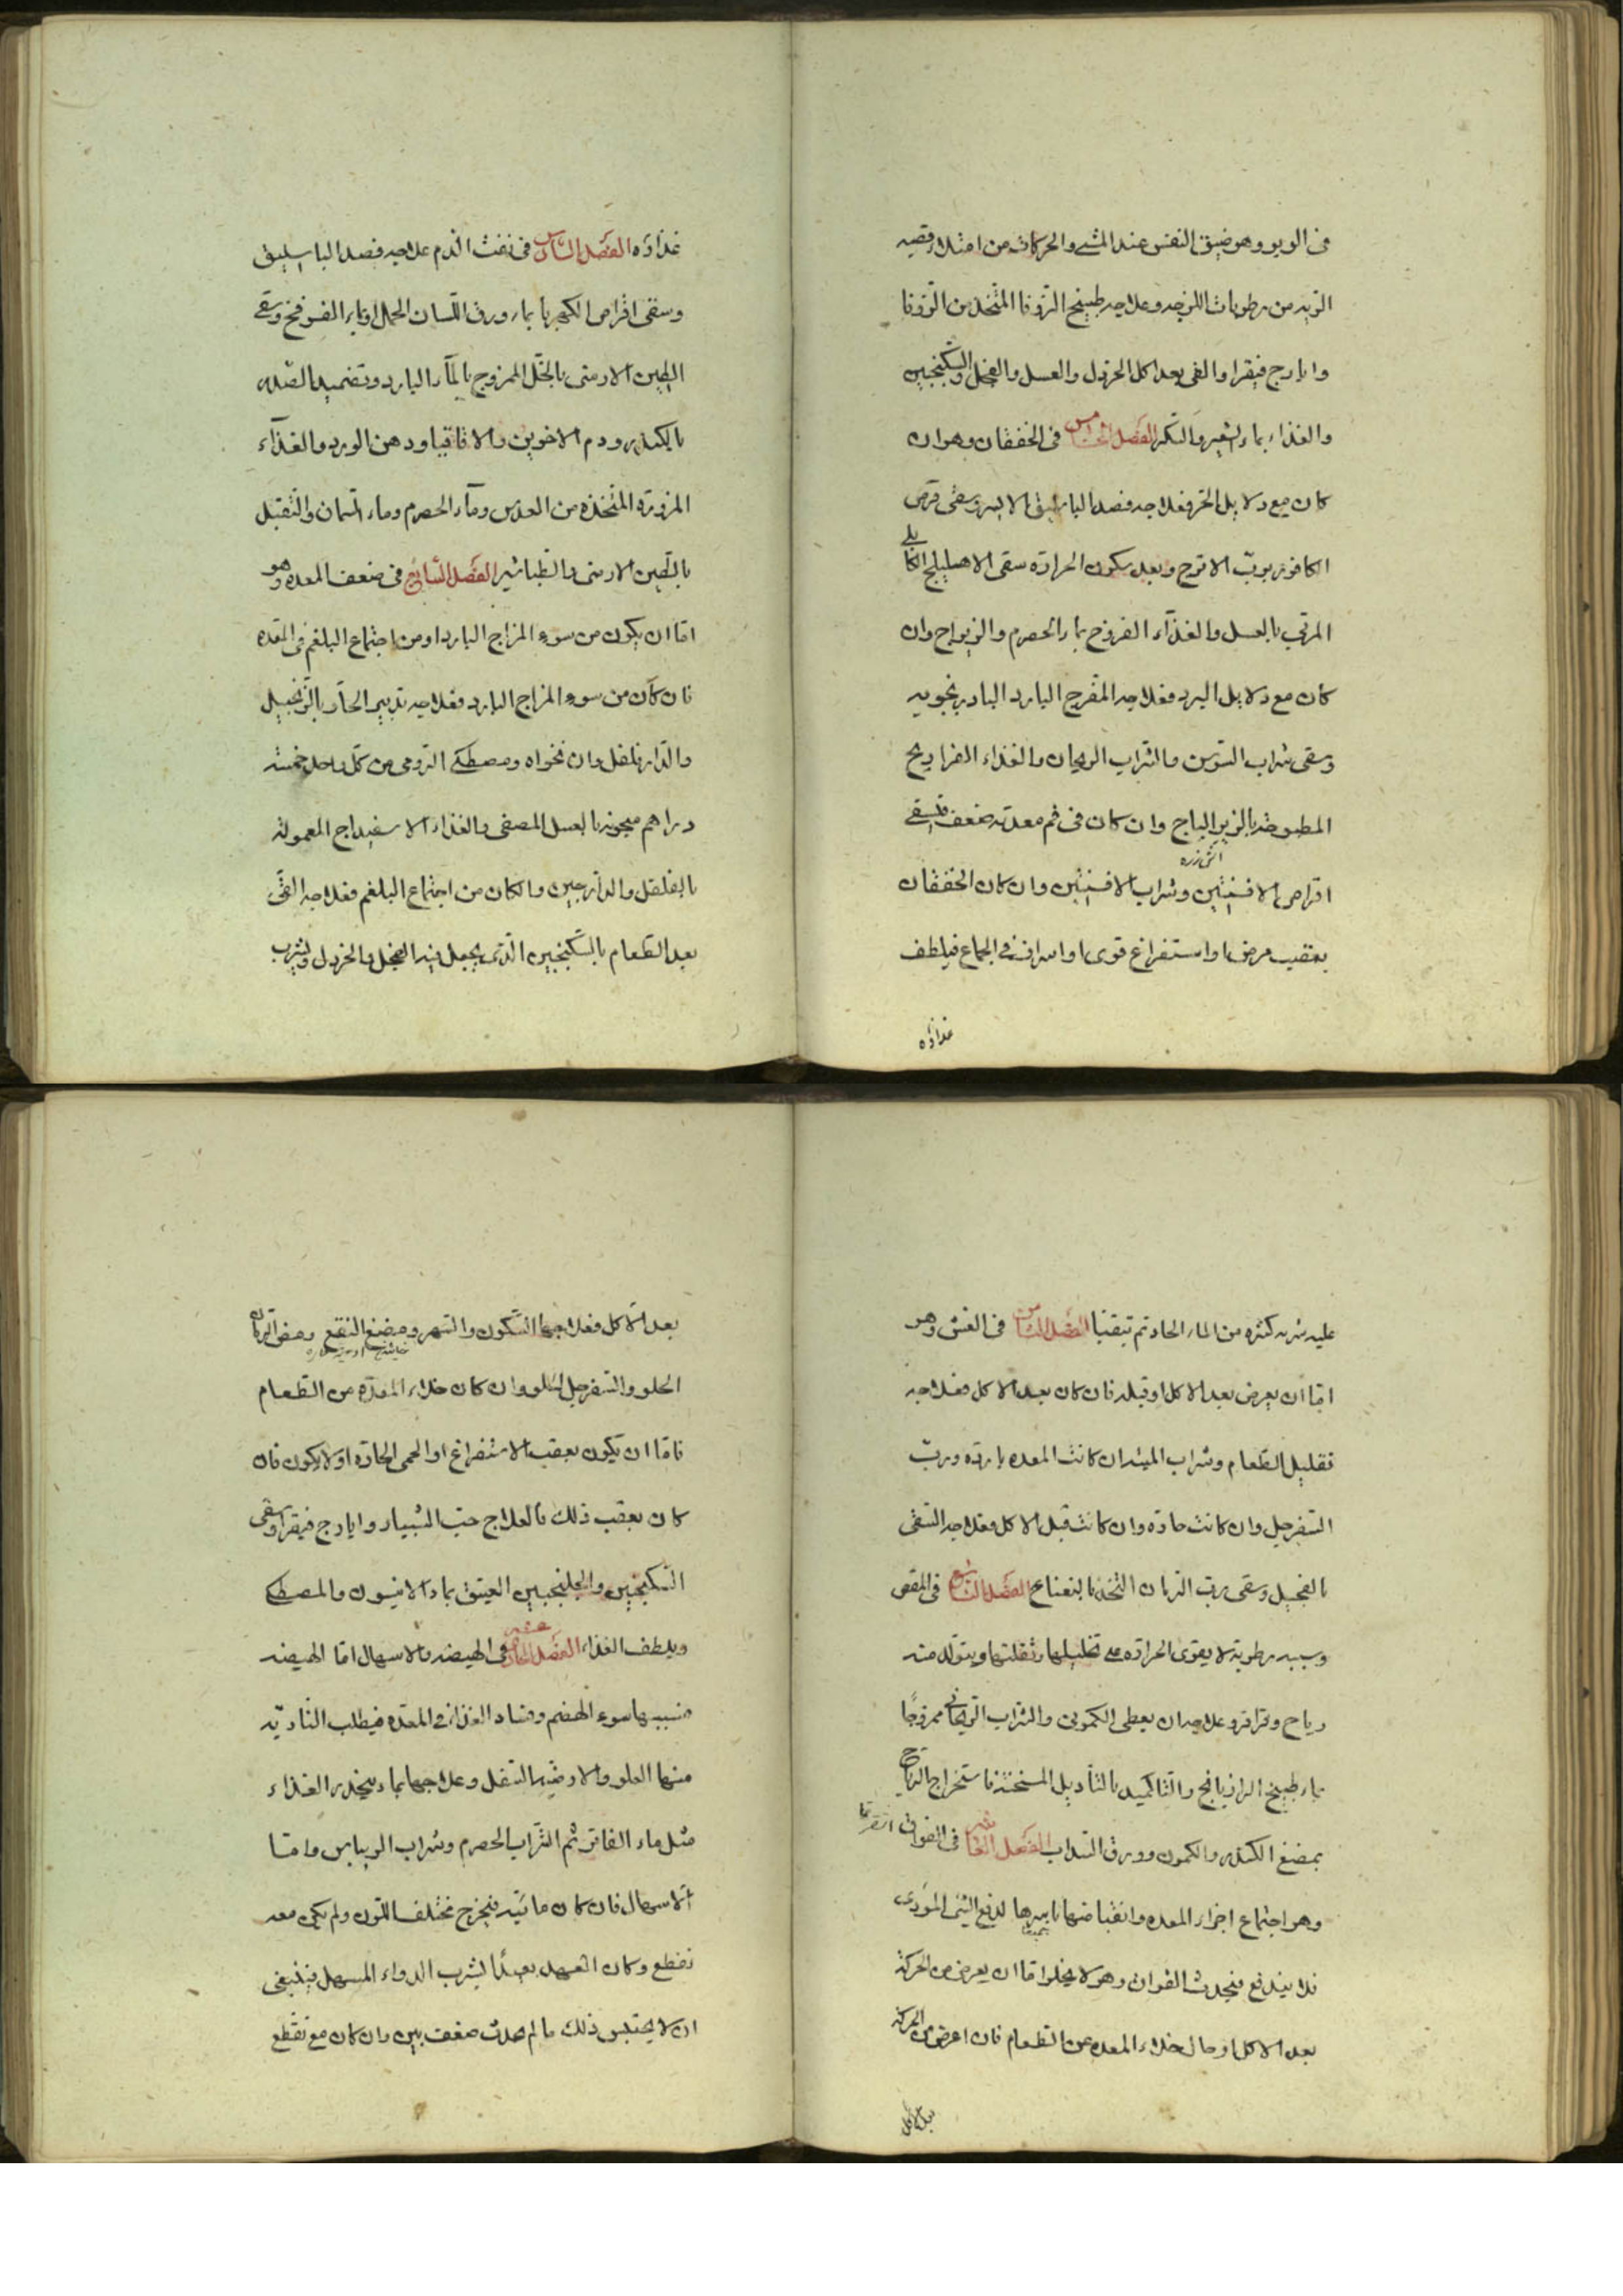 فى الربو وهو ضيق النفس عند المشى والحركات من امتلاء قصبه
الريه من رطوبات اللزجه وعلاجه طبيخ الزوفا المتخذ من الزوفا
وايارج فيقرا والقى بعد اكل الخردل والعسل والفجل والسكنجبين
والغذاء بماء الشعير والسكر الفصل الخامس فى الخفقان وهو ان
كان مع دلايل الحر فعلاجه فصد الباسليق الايسر وسقى قرص
الكافور بربّ الاترج وبعد سكون الحرارة سقى الاهليلج الكابلى
المربى بالعسل والغذاء الفروخ بماء الحصرم والزيرباج وان
كان مع دلايل البرد فعلاجه المفرح البارد البادرنجويه
وسقى شراب السوسن والشراب الريحان والغذاء الفراريح
المطبوخه بالزيرالباج وان كان فى فم معدته ضعف فيسقى
اقراص الافسنتين وشراب الافسنتين وان كان الخفقان
بعقيب مرض او استفراغ قوى او اسراف فى الجماع فيلطف
غذاؤه
غذاؤه الفصل السادس فى نفث الدم علاجه فصد الباسليق
وسقى اقراص الكهربا بماء ورق اللسان الحمل او بماء الفرفخ وسقى
الطين الارمنى بالخل الممزوج بالمآء البارد وتضميد الصدر
بالكندر ودم الاخوين والاقاقيا ودهن الورد والغذآء
المزوره المتخذه من العدس ومآء الحصرم وماء الرمان والتنقيل
بالطين الارمنى والطباشير الفصل السابع فى ضعف المعده وهو
امّا ان يكون من سوء المزاج البارد او من اجتماع البلغم فى المعده
فان كان من سوء المزاج البارد فعلاجه تدبير الحآر بالزنجبيل
والدارفلفل وان نخواه ومصطكى الرومى من كلّ واحد خمسة
دراهم معجونه بالعسل المصفى والغذاء الاسفيداج المعموله
بالفلفل والدارچين والكان من اجتماع البلغم فعلاجه القى
بعد الطعام بالسكنجبين الّذى يجعل فيه الفجل والخردل ويشرب
عليه شربه كثيره من الماء الحار ثم يتقيا الفصل الثامن فى الغشى وهو
امّا ان يعرض بعد الاكل او قبله فان كان بعد الاكل فعلاجه
تقليل الطعام وشراب الميبه ان كانت المعده بارده وربّ
السفرجل وان كانت حارّه وان كانت قبل الاكل وعلاجه السقى
بالفجل وسقى ربّ الرمان المتخذ بالنعناع الفصل التاسع فى المغص
وسببه رطوبة لا يقوى الحرارة على تحليلها ونقلتها ويتولد منه
رياح وقراقر وعلاجه ان يعطى الكمونى والشراب الريحانى ممزوجًا
بماء طبيخ الرازيانج والتكميد بالثآديل المسخنة فاستخراج الرياح
بمضغ الكندر والكمون وورق السداب الفصل العاشر فى الفواق
وهو اجتماع اجزاء المعده وانقباضها باسرها لدفع الشئ المؤذى
فلا يندفع فيحدث الفواق وهو لا يخلوا امّا ان يعرض من الحركة
بعد الاكل او حال خلاء المعده عن الطعام فان اعرض من الحركة
بعد الاكل
بعد الاكل فعلاجها السكون والسهر ومضغ النقع ومص الرمان
الحلو والسفرجل الحلو وان كان خلاء المعدّه من الطعام
فامّا ان تكون بعقب الاستفراغ او الحمى الحادّه او لا يكون فان
كان بعقب ذلك فالعلاج حبّ الشبيار وايارج فيقرا وسقى
السكنجبين والجلنجبين العتيق بماء الانيسون والمصطكى
ويلطف الغذاء الفصل الحادى عشر فى الهيضه والاسهال امّا الهيضه
فسببها سوء الهضم وفساد الغذاء فى المعده فيطلب الناريّه
منها العلو والارضيّه السفل وعلاجها بماء يحدر الغذاء
مثل ماء الفاتر ثم الشّراب الحصرم وشراب الريباس وامّا
الاسهال فان كان مائيّه فيخرج مختلف اللون ولم يكن معه
تقطع وكان العهد بعيدًا بشرب الدواء المسهل فينبغى
ان لا يحتبس ذلك ما لم يحدث ضعف بيّن وان كان مع تقطع